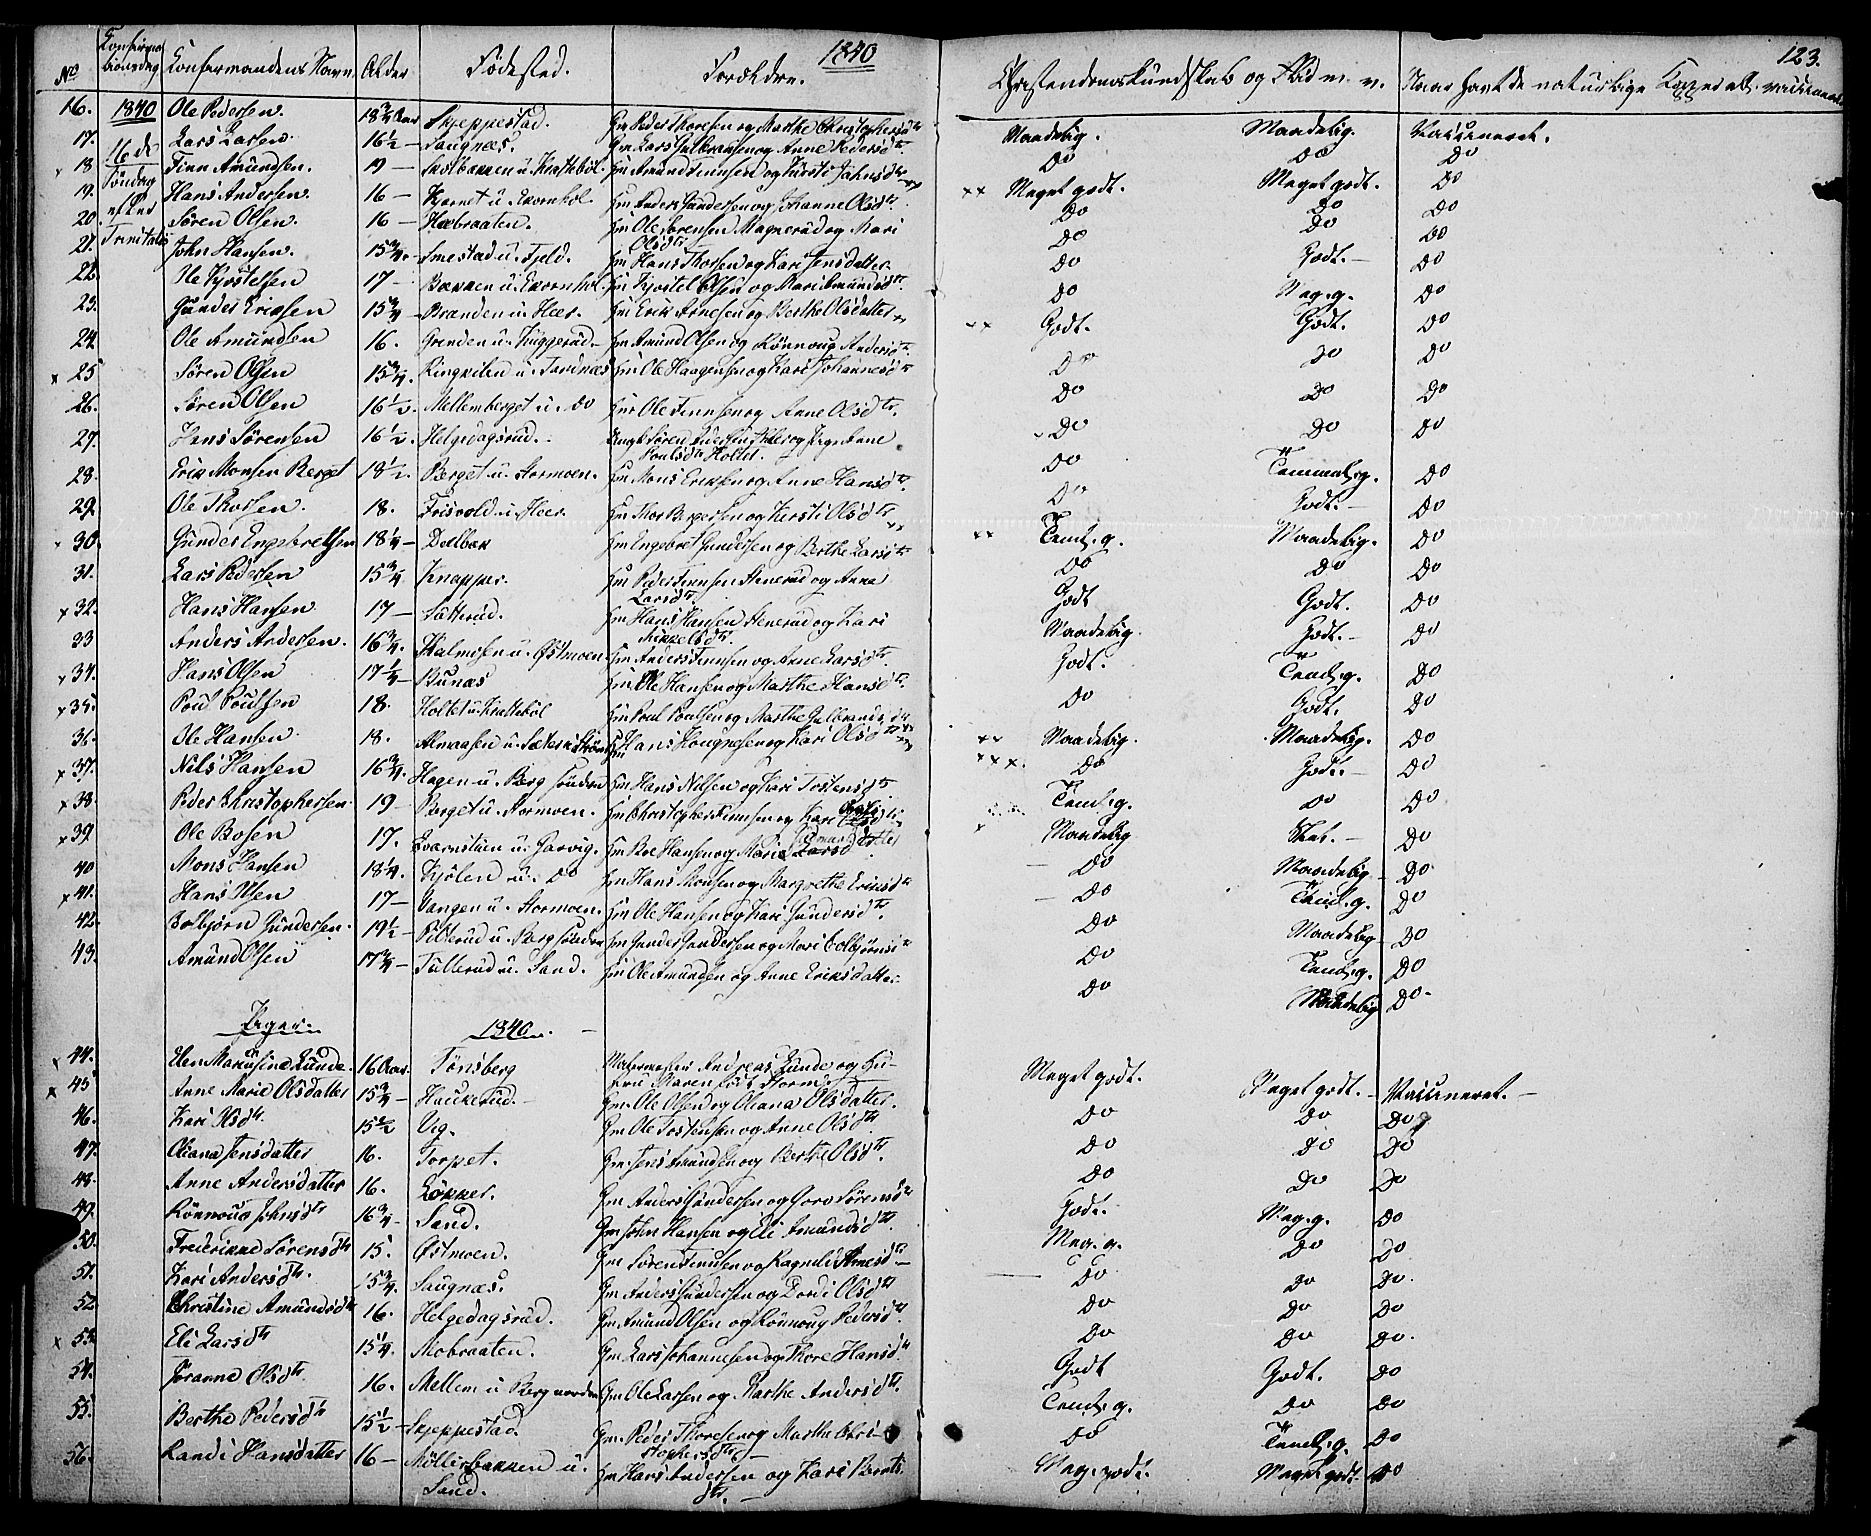 1840
123.
No Confirmationsdag Confirmandens Navn Alder Födested. Forældre. Christendomskundskab og Flid m. v. Naar havt de naturlige Kopper ell. vaccineret
16. 1840 Ole Pedersen. 18 3/4 Aar Skjeppestad. Gm Peder Thoresen og Marthe Christophersd tr Maadelig. Maadelig. Vaccineret.
17. 16de Lars Larsen. 16 1/2 – Saugnæs. Gm Lars Gulbransen og Anne Pedersd tr Do Do Do
18 Söndag Finn Amundsen. 19 – u. Krokeböl. Hm Amund Finnsen og Kirsti Johnsd tr Meget godt. Meget godt. Do
19. efter Hans Andersen. 16 – Kjernet u. Exornhol. Hm Anders Gundersen og Johanne Olsd tr Do Do Do
20. Trinitatis Sören Olsen. 16 – Hæbraaten. Hm Ole Sörensen Magnerud og Mari Olsd tr Do Do Do
21. John Hansen. 15 3/4 – Smestad u. Fjeld. Hm Hans Thorsen og Kari Jensdatter Do Godt. – Do
22. Ole Kjöstelsen 17 – Bakken u. Exornhol. Hm Kjöstel Olsen og Mari Amundsd tr Do Meg. g. Do
23. Gunder Ericsen 15 3/4 – Branden u. Heer. Hm Erik Arnesen og Berthe Olsdatter Godt. Godt. Do
24. Ole Amundsen 16. Grinden u. Huggerud. Hm Amund Olsen og Rönnoug Andersd tr Do Do Do
25 Sören Olsen 15 3/4. u. Sandnæs Hm Ole Haagensen og Kari Johannesd tr Do Do Do
26. Sören Olsen 16 1/2. Mellemberget u. Do Hm Ole Finnsen og Anne Olsd tr. Do Do Do
27. Hans Sörensen 16 1/2. Helgedagsrud. Ungk. Sören Andersen og Pige Anne Poulsd tr Holtet. Do Temmel. g. Do
28. Erik Monsen Berget 18 1/2. Berget u. Stormoen. Hm Mons Eriksen og Anne Hansd tr. Do Godt. – Do
29. Ole Thorsen. 18. Frisvold u. Heer. Hm Thor Bergersen og Kersti Olsd tr Teml. g. Maadelig. Do
30. Gunder Engebretsen 18 1/4 – Dælbæk Hm Engebret Gundersen og Berthe Larsd tr Do Do Do
31. Lars Pedersen 15 3/4 Knapper. Hm Peder Finnsen Stenerud og Anne Larsd tr. Godt Godt. Do
32. Hans Hansen 17 – Sötterud. Hm Hans Hansen Stenerud og Kari Mikkelsd tr. Maadelig. Godt. – Do
33 Anders Andersen. 16 3/4. Halmosen u. Östmoen. Hm Anders Finnsen og Anne Larsd tr. Godt. Teml. g. Do
34. Hans Olsen 17 1/4 – Bunæs Hm Ole Hansen og Marthe Hansd tr. Do Godt. Do
35. Poul Poulsen 18. Holtet u. Krokeböl Hm Poul Poulsen og Marthe Gulbrandsd tr Maadelig. Maadelig. Do
36. Ole Hansen. 18. Almaasen u. Hm Hans Hougnesen og Kari Olsd tr Do Godt. – Do
37. Nils Hansen 16 3/4. Hagen u. Berg sönden Hm Hans Nilsen og Kari Tostensd tr Teml. g. Do Do
38. Peder Christophersen 19 – Berget u. Stormoen. Hm Christopher Finnsen og Kari Maadelig Slet. – Do
39. Ole Boesen 17. Qvernstuen u. Garvig. Hm Boe Hansen og Marie Do Maadelig Do
40 Mons Hansen 18 1/4. Kjölen u. Do Hm Hans Monsen og Margrethe Eriksd tr Do Teml. g. Do
41. Hans Olsen 17 – Vangen u. Stormoen. Hm Ole Hansen og Kari Gundersd tr. Do Maadelig Do
42. Colbjörn Gundersen. 19 1/2 – Pilterud u. Berg sönden Hm Gunder Gundersen og Mari Colbjörnsd tr Do Teml. g. Do
43. Amund Olsen 17 3/4 – Tullerud u. Sand. Hm Ole Amundsen og Anne Eriksdatter Do Maadelig Do.
Piger. 1840.
44. Elen Mariusine Lunde. 16 Aar. Tönsberg Andreas Lunde og Hustru Maren födt Storm. Meget godt. Meget godt. – Vaccineret. –
45 Anne Marie Olsdatter 15 3/4 – Haukerud. Gm Ole Olsen og Oliana Olsdatter. Do Do Do
46. Kari Olsd tr. 15 1/2 Vig. Gm Ole Tostensen og Anne Olsd tr Do Do Do
47. Oliana Jensdatter 16. Torpet. Gm Jens Amundsen og Berthe Olsd tr. Do Do Do
48. Anne Andersdatter 16. Lökker. Gm Anders Gundersen og Goro Sörensd tr Godt. Meg. g. Do
49. Rönnoug Johnsd tr 16 3/4 Sand. Gm John Hansen og Eli Amundsd tr Meg. g. Do Do
50. Frederikke Sörensd tr 15. Östmoen. Gm Sören Finnsen og Ragnild Arnesd tr Do Do Do.
51. Kari Andersd tr. 15 3/4. Saugnæs. Gm Anders Gundersen og Dordi Olsd tr Do Do Do
52. Christine Amundsd tr 16. Helgedagsrud. Gm Amund Olsen og Rönnoug Pedersd tr. Do Do Do.
53. Eli Larsd tr 15 1/4. Mobraaten. Gm Lars Johannesen og Thore Hansd tr Godt Godt. Do
54. Joranna Olsd tr. 16. Mellem u. Berg norden Gm Ole Larsen og Marthe Andersd tr. Teml. g. Do Do
55. Berthe Pedersd tr 15 1/2 – Skjeppestad. Gm Peder Thoresen og Marthe Christophersd tr – Do Teml. g. Do
56. Randi Hansdatter 16 – Möllerbakken u. Sand. Gm Hans Andersen og Kari Berntsd tr. – Meg. godt. Meget godt. Do